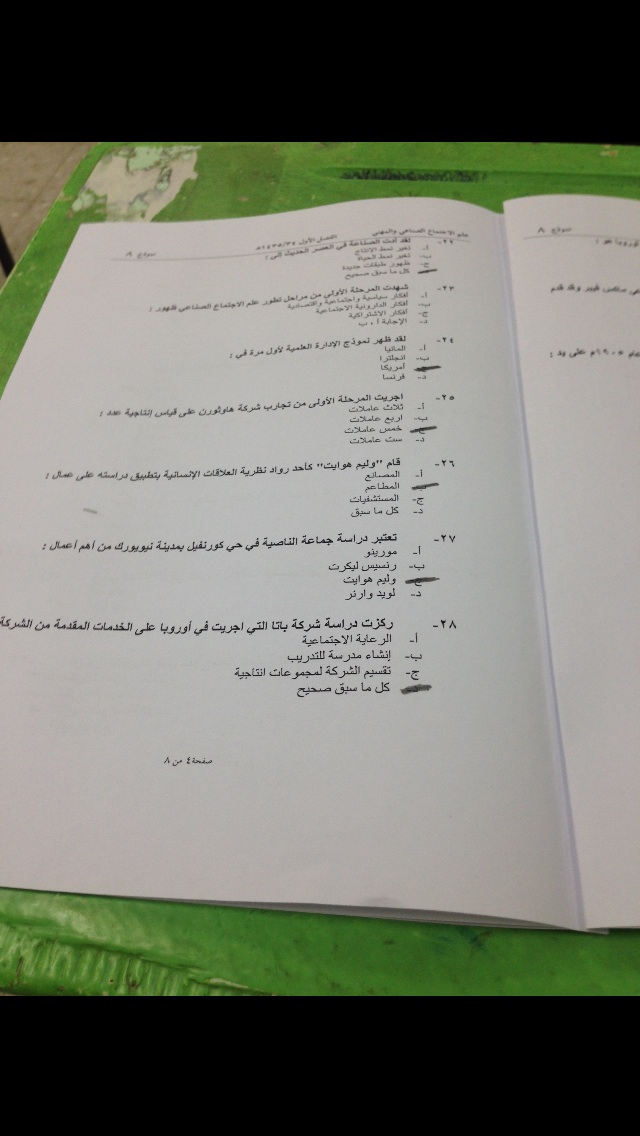 علم الاجتماع الصناعي والمهني الفصل الأول ١٤٣٥/٣٤هـ نموذج
٢٢- لقد أدت الصناعة في العصر الحديث إلى :
أ- تغير نمط الانتاج
ب- تغير نمط الحياة
ج- ظهور طبقات جديدة
كل ما سبق صحيح
٢٣- شهدت المرحلة الأولى من مراحل تطور علم الاجتماع الصناعي ظهور :
أ- أفكار سياسية واجتماعية واقتصادية
ب- أفكار الدارونية الاجتماعية
ج- أفكار الاشتراكية
د- الإجابة أ ، ب
٢٤- لقد ظهر نموذج الإدارة العلمية لأول مرة في :
أ- المانيا
ب- انجلترا
أمريكا
د- فرنسا
٢٥- اجريت المرحلة الأولى من تجارب شركة هاوثورن على قياس إنتاجية عدد :
أ- ثلاث عاملات
ب- اربع عاملات
ج- خمس عاملات
د- ست عاملات
٢٦- قام "وليم هوايت" كأحد رواد نظرية العلاقات الإنسانية بتطبيق دراسته على عمال :
أ- المصانع
ب- المطاعم
ج- المستشفيات
د- كل ما سبق
٢٧- تعتبر دراسة جماعة الناصية في حي كورنفيل بمدينة نيويورك من أهم أعمال :
أ- مورينو
ب- رنسيس ليكرت
ج- وليم هوايت
د- لويد وارنر
٢٨- ركزت دراسة شركة باتا التي اجريت في أوروبا على الخدمات المقدمة من الشركة
أ- الرعاية الاجتماعية
ب- إنشاء مدرسة للتدريب
ج- تقسيم الشركة لمجموعات انتاجية
كل ما سبق صحيح
صفحة ٤ من ٨
نموذج ٨
أوروبا هو :
سي سانكس فيبر وقد قدم
عام ١٩٠٥م على يد :